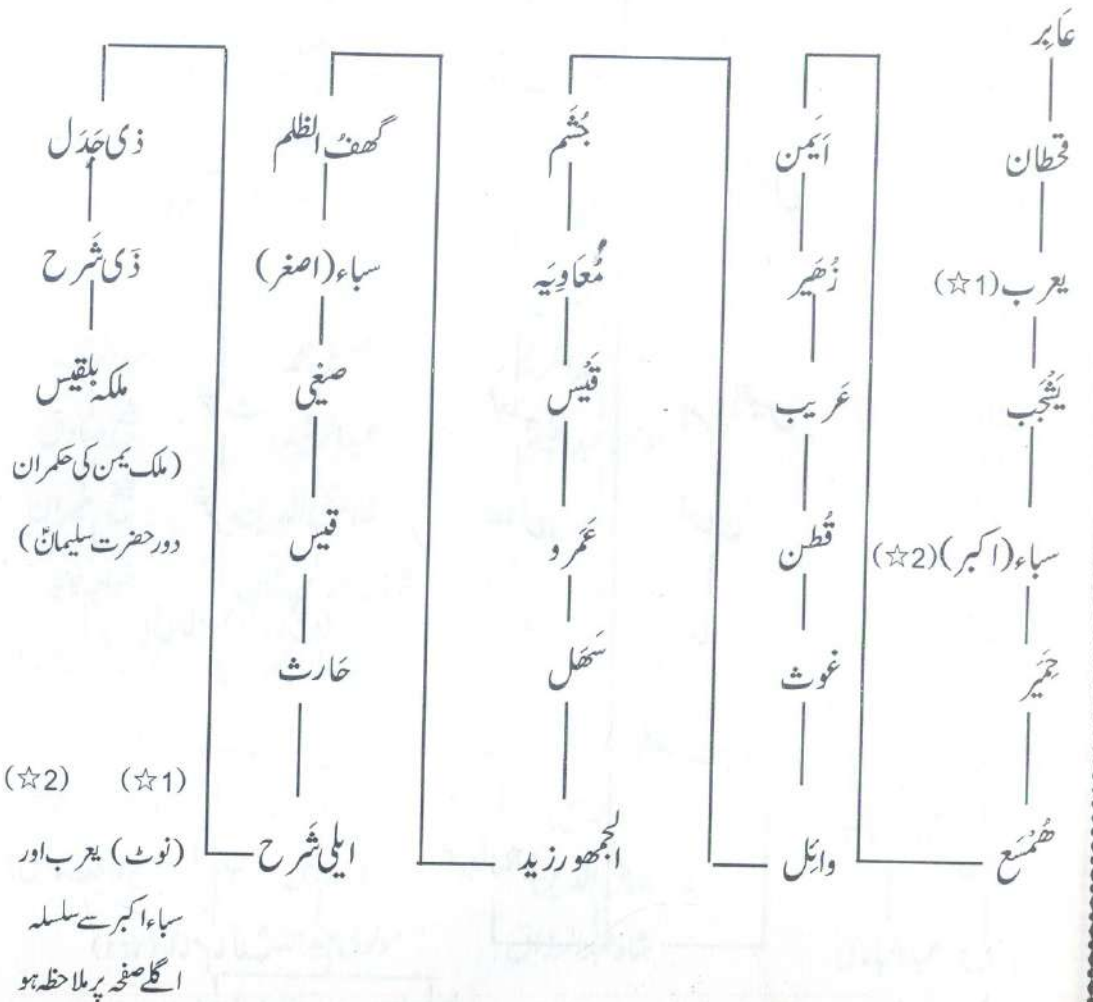 عَابِر
قحطان
یعرب (☆1)
یَشْجُب
سباء (اکبر) (☆2)
حِمَیر
ھَمُسَع
اَیمن
زُھَیر
عَریب
قُطن
غوث
وائِل
جُشَم
مُعَاوِیَہ
قَیُس
عَمَرو
سَھَل
الجمھور زید
گھفُ الظلم
سباء (اصغر)
صیفی
قیس
حَارث
ایلی شَرح
ذی جَدَل
ذَی شَرح
ملکہ بلقیس
(ملک یمن کی حکمران
دور حضرت سلیمانؑ)
(☆1) (☆2)
(نوٹ) یعرب اور
سباء اکبر سے سلسلہ
اگلے صفحہ پر ملاحظہ ہو